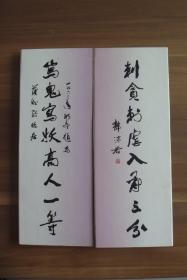 刺貪刺虐入骨三分
郭沫若
一九六二年
寫鬼寫妖高人一等
蒲松齡故居